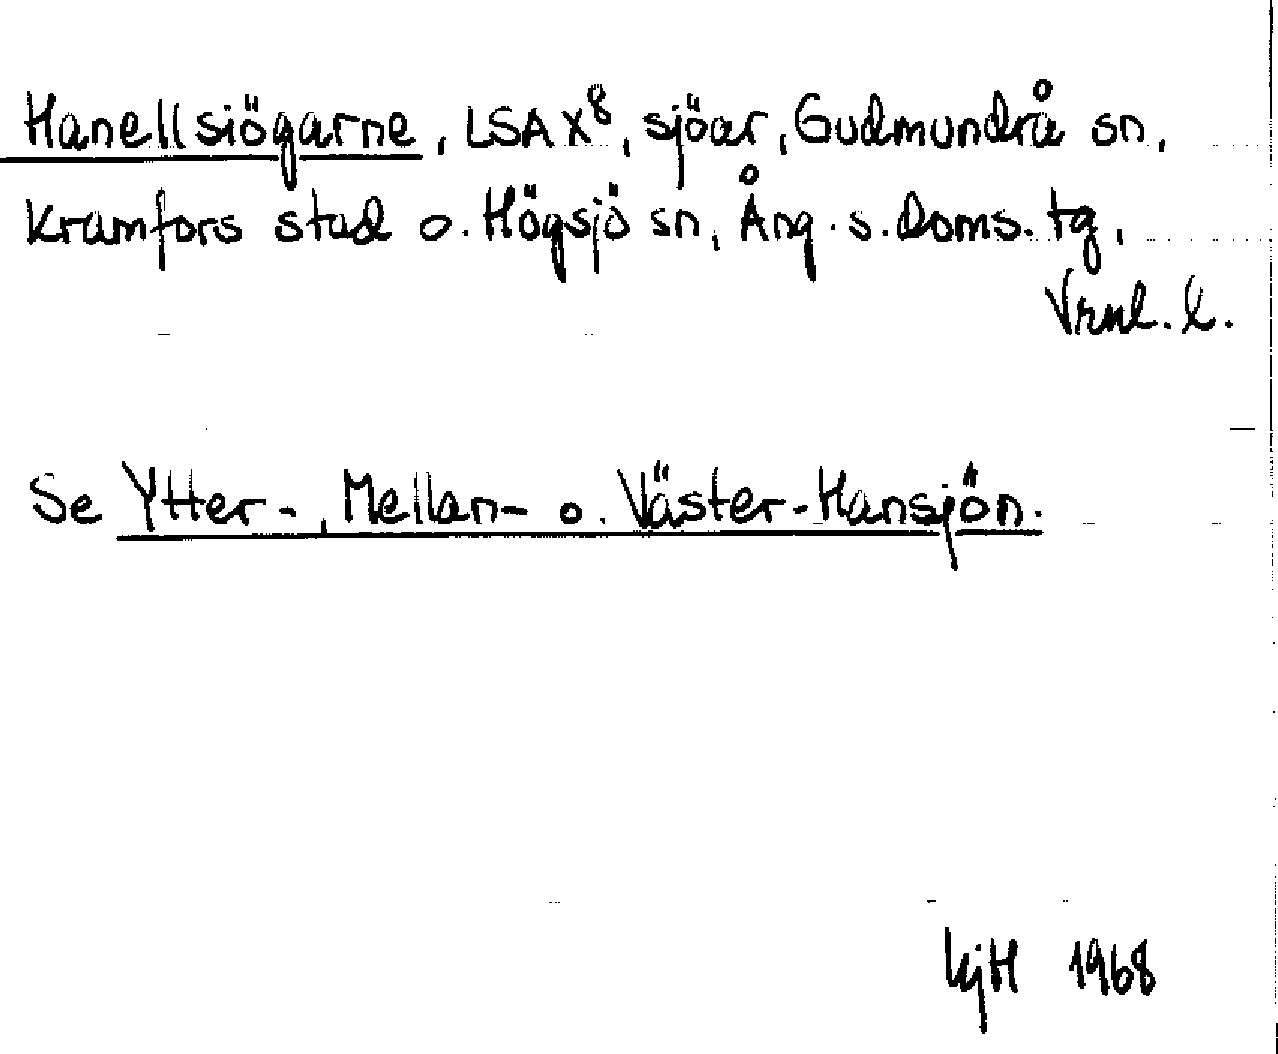 Hanellsiögarne, LSA X⁸, sjöar, Gudmundrå sn,
Kramfors stad o. Högsjö sn, Ång. s. doms. tg,
Vrnl. l.
Se Ytter-, Mellan- o. Väster-Hansjön.
KjH 1968